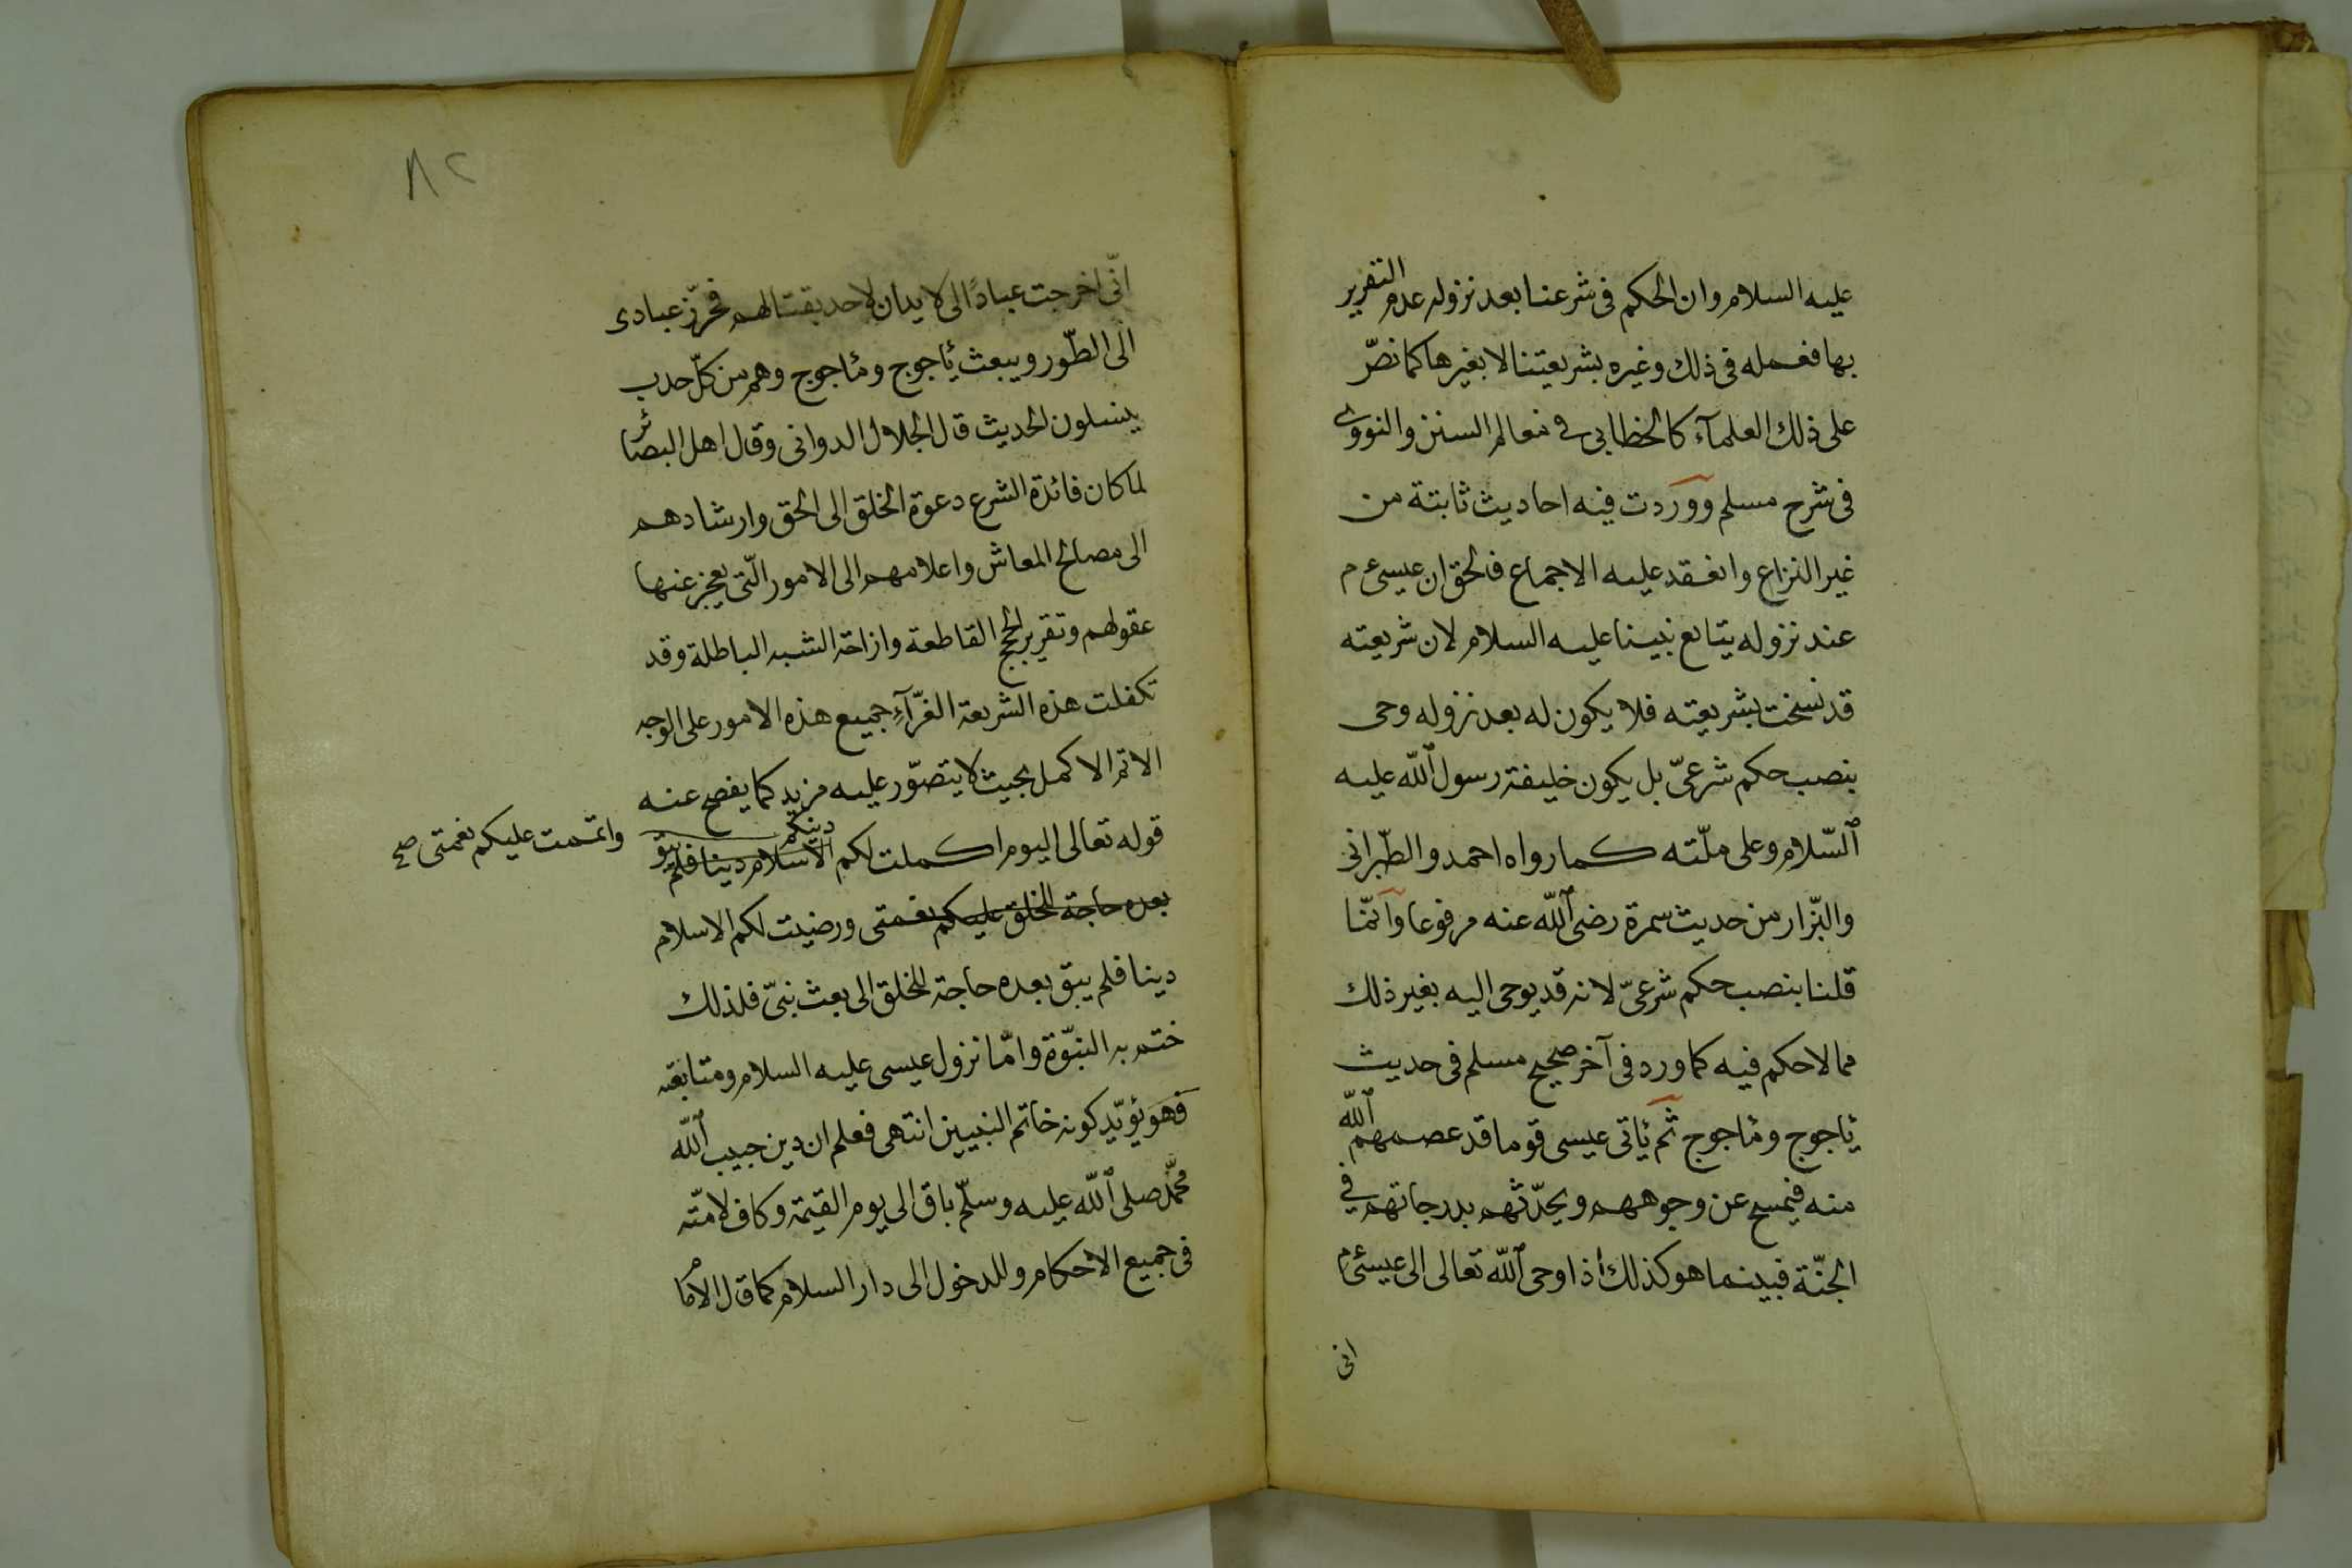 عليه السلام وان الحكم فى شرعنا بعد نزوله عدم التقرير
بها فعمله فى ذلك وغيره بشريعتنا لا بغيرها كما نصّ
على ذلك العلمآء كالخطابى فى معالم السنن والنووى
فى شرح مسلم ووردت فيه احاديث ثابتة من
غير النزاع وانعقد عليه الاجماع فالحق ان عيسى ءم
عند نزوله يتابع نبينا عليه السلام لان شريعته
قد نسخت بشريعته فلا يكون له بعد نزوله وحى
بنصب حكم شرعىّ بل يكون خليفة رسول الله عليه
السّلام وعلى ملّته كما رواه احمد والطّبرانى
والبزّار من حديث سمرة رضى الله عنه مرفوعا وانّما
قلنا بنصب حكم شرعىّ لانه قد يوحى اليه بغير ذلك
مما لا حكم فيه كما ورد فى آخر صحيح مسلم فى حديث
يأجوج ومأجوج ثم يأتى عيسى قوما قد عصمهم الله
منه فيمسح عن وجوههم ويحدّثهم بدرجاتهم فى
الجنّة فبينما هو كذلك اذ اوحى الله تعالى الى عيسى ءم
انى
٨٢
انّى اخرجت عبادًا لى لا يدان لاحد بقتالهم فحرّز عبادى
الى الطّور ويبعث يأجوج ومأجوج وهم من كلّ حدب
ينسلون الحديث قال الجلال الدوانى وقال اهل البصائر
لما كان فائدة الشرع دعوة الخلق الى الحق وارشادهم
الى مصالح المعاش واعلامهم الى الامور الّتى يعجز عنها
عقولهم وتقرير الحجج القاطعة وازاحة الشبه الباطلة وقد
تكفلت هذه الشريعة الغرّآء جميع هذه الامور على الوجه
الاتم الاكمل بحيث لا يتصوّر عليه مزيد كما يفصح عنه
قوله تعالى اليوم اكملت لكم دينكم الاسلام دينا فلم يبق
واتممت عليكم نعمتى صح
بعده حاجة للخلق عليكم نعمتى ورضيت لكم الاسلام
دينا فلم يبق بعده حاجة للخلق الى بعث نبىّ فلذلك
ختم به النبوّة وامّا نزول عيسى عليه السلام ومتابعته
فهو يؤيّد كونه خاتم النبيين انتهى فعلم ان دين حبيب الله
محمّد صلى الله عليه وسلّم باق الى يوم القيمة وكاف لامّته
فى جميع الاحكام وللدخول الى دار السلام كما قال الامام